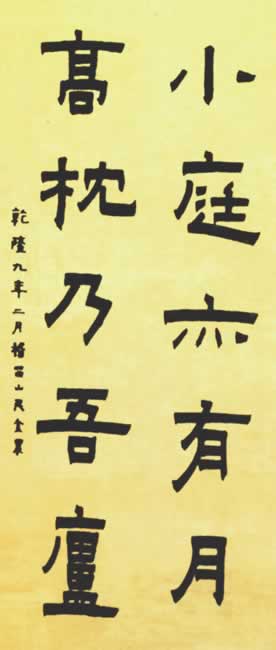 小庭亦有月
高枕乃吾廬
乾隆九年二月稽留山民金農